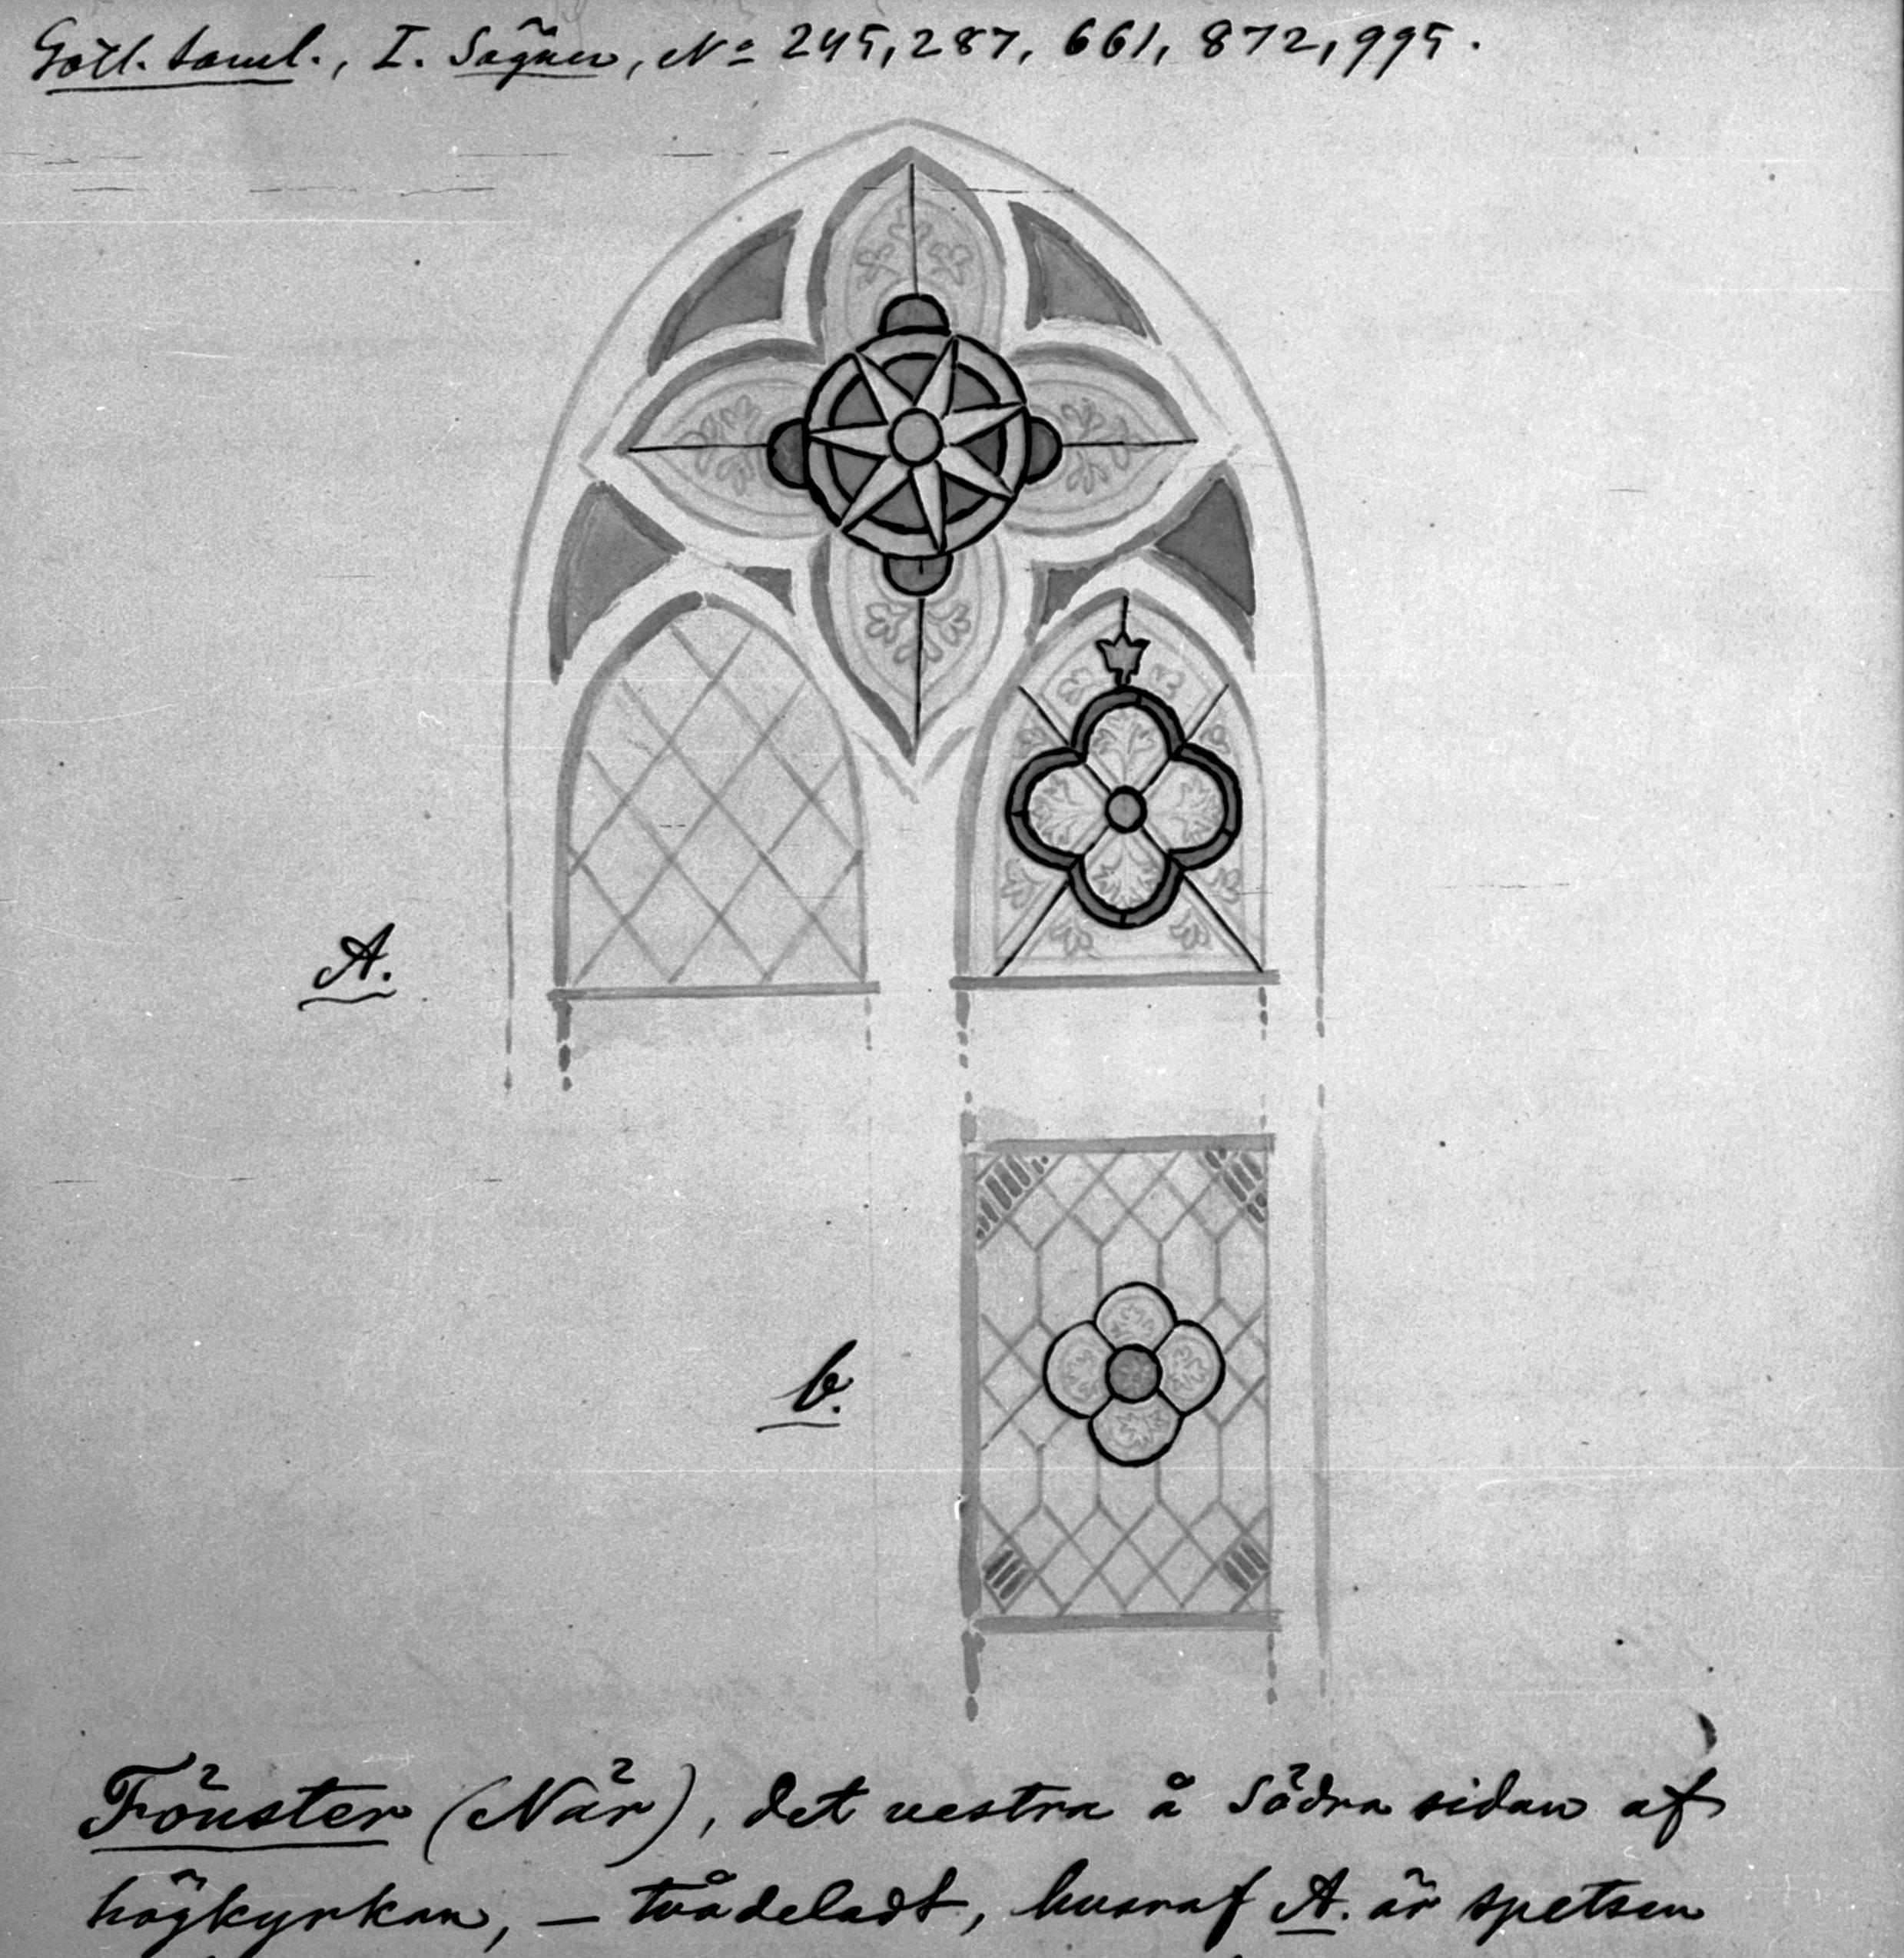 Gotl. saml., I. Sägner, No 245, 287, 661, 872, 995.
A.
b.
Fönster (När), det vestra å södra sidan af
högkyrkan, — tvådeladt, hvaraf A. är spetsen